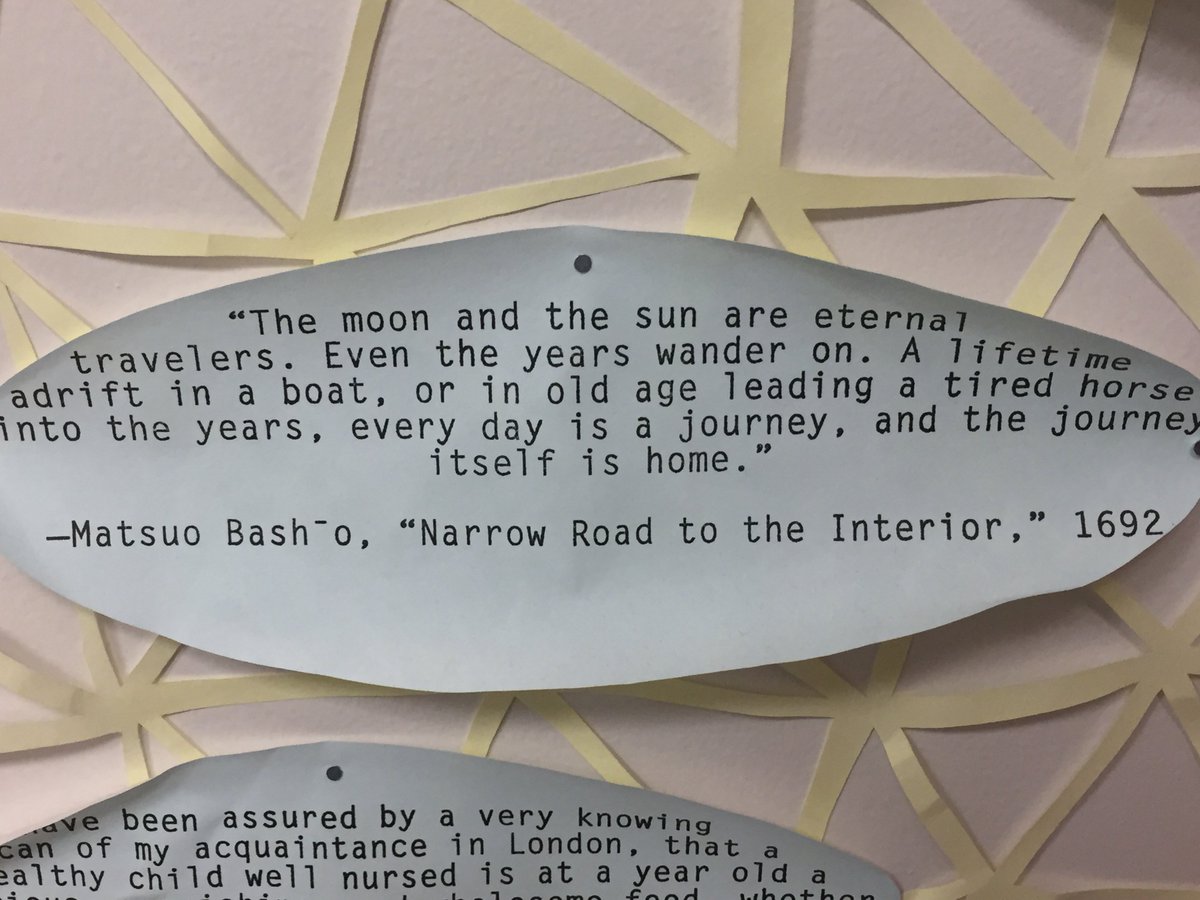 “The moon and the sun are eternal
travelers. Even the years wander on. A lifetime
adrift in a boat, or in old age leading a tired horse
into the years, every day is a journey, and the journey
itself is home.”
—Matsuo Bash¯o, “Narrow Road to the Interior,” 1692
been assured by a very knowing
of my acquaintance in London, that a
child well nursed is at a year old a